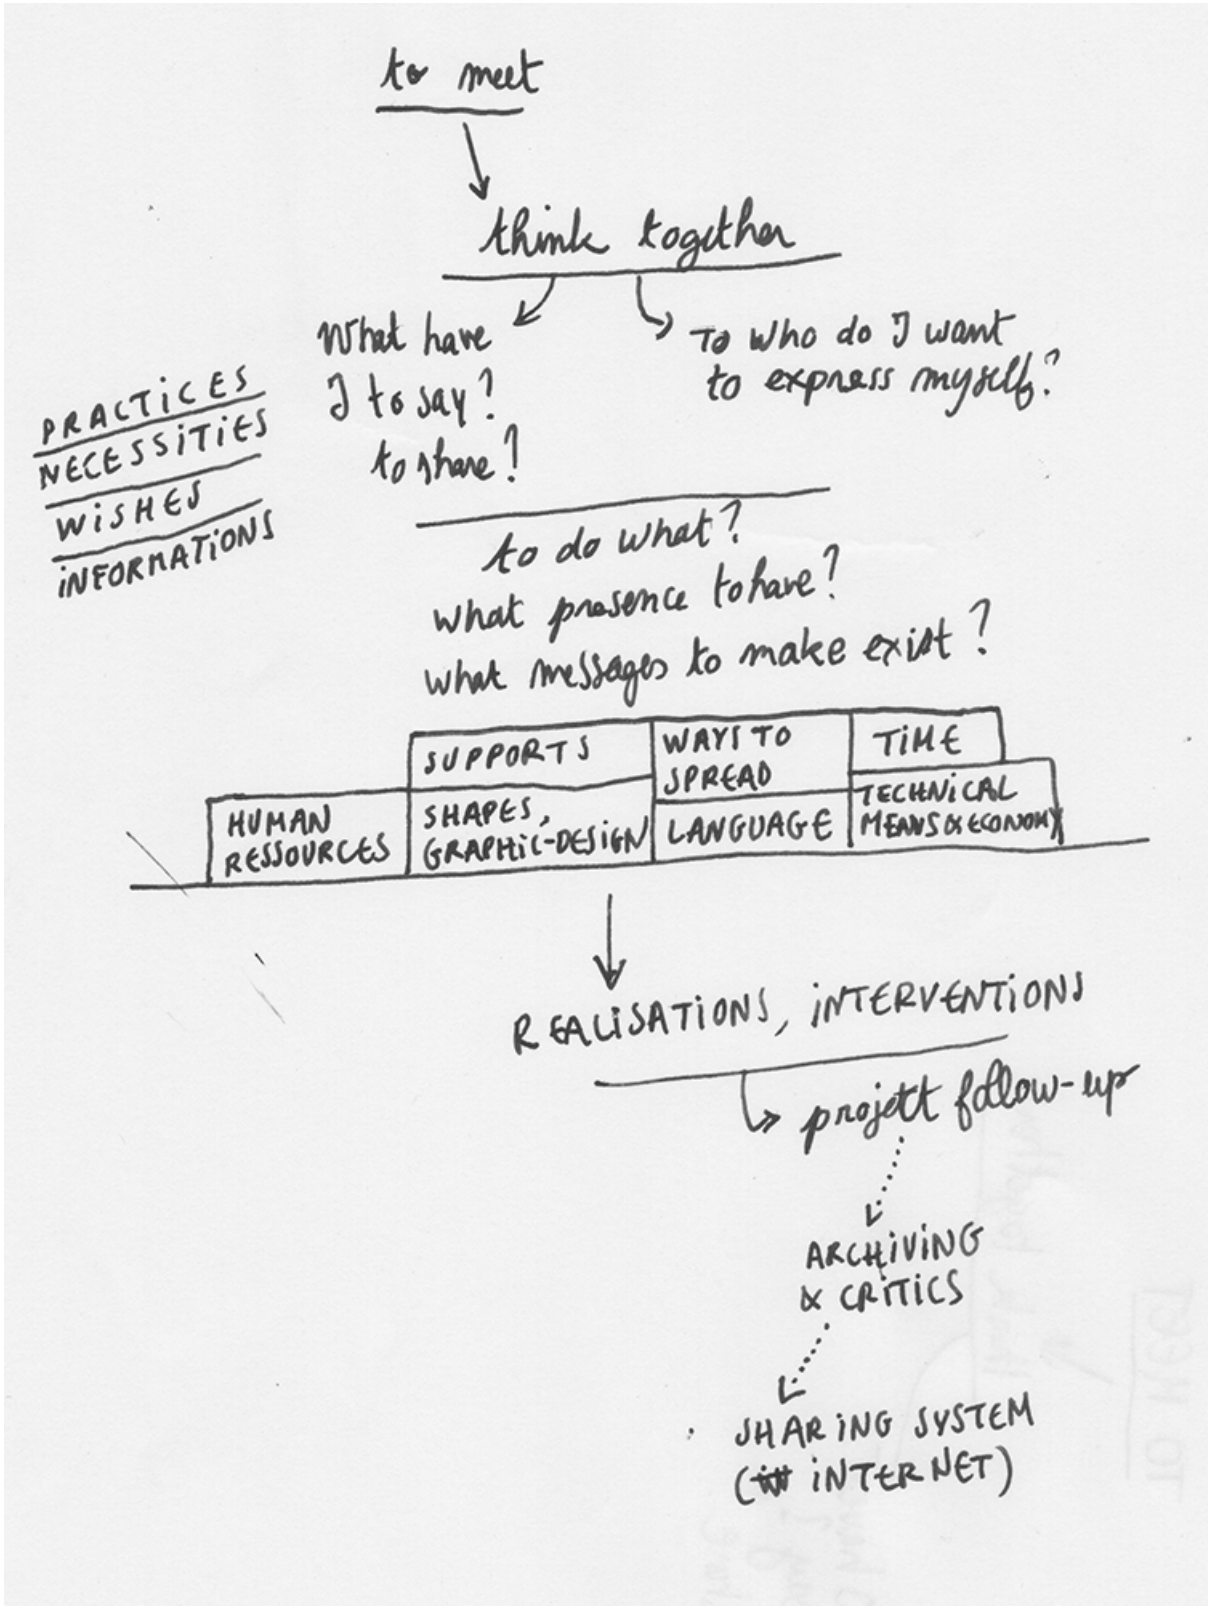 to meet
think together
What have
I to say?
to share?
To who do I want
to express myself?
PRACTICES
NECESSITIES
WISHES
INFORMATIONS
to do what?
what presence to have?
what messages to make exist?
SUPPORTS
WAYS TO
SPREAD
TIME
HUMAN
RESSOURCES
SHAPES,
GRAPHIC-DESIGN
LANGUAGE
TECHNICAL
MEANS & ECONOMY
REALISATIONS, INTERVENTIONS
projett follow-up
ARCHIVING
& CRITICS
SHARING SYSTEM
(INTERNET)
TO MEET
think together